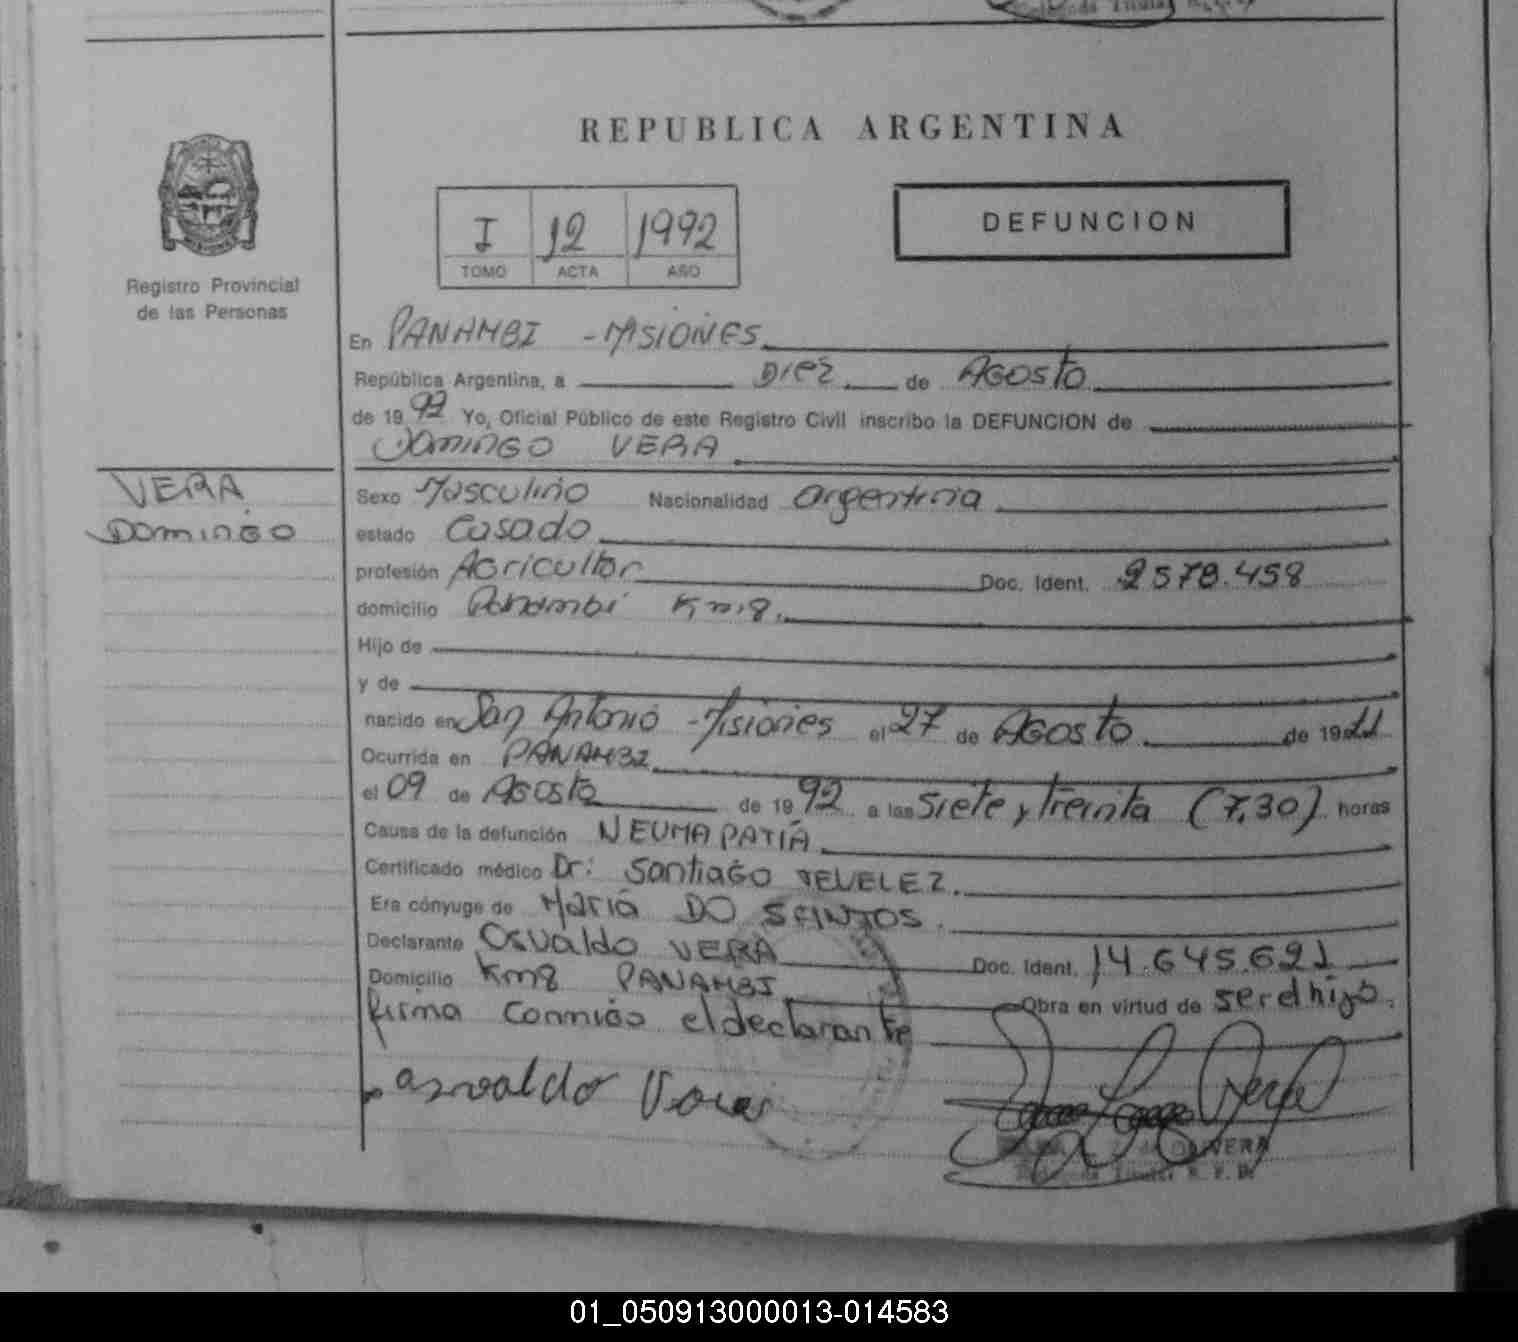 REPUBLICA ARGENTINA
I 12 1992
TOMO ACTA AÑO
DEFUNCION
Registro Provincial
de las Personas
VERA
DOMINGO
En PANAMBI - MISIONES
República Argentina, a DIEZ de AGOSTO
de 19 92 Yo, Oficial Público de este Registro Civil inscribo la DEFUNCION de
DOMINGO VERA
Sexo Masculino Nacionalidad argentina
estado Casado
profesión Agricultor Doc. Ident. 2578.458
domicilio Panambi Km.8.
Hijo de
y de
nacido en San Antonio - Misiones el 27 de AGOSTO de 19 11
Ocurrida en PANAMBI
el 09 de Agosto de 19 92 a las Siete y treinta (7,30) horas
Causa de la defunción NEUMAPATIA
Certificado médico Dr: Santiago TEVELEZ.
Era cónyuge de Maria DO SANTOS.
Declarante Osvaldo VERA Doc. Ident. 14.645.621
Domicilio Km8 PANAMBI Obra en virtud de ser el hijo.
firma conmigo el declarante
osvaldo Vera
01_050913000013-014583